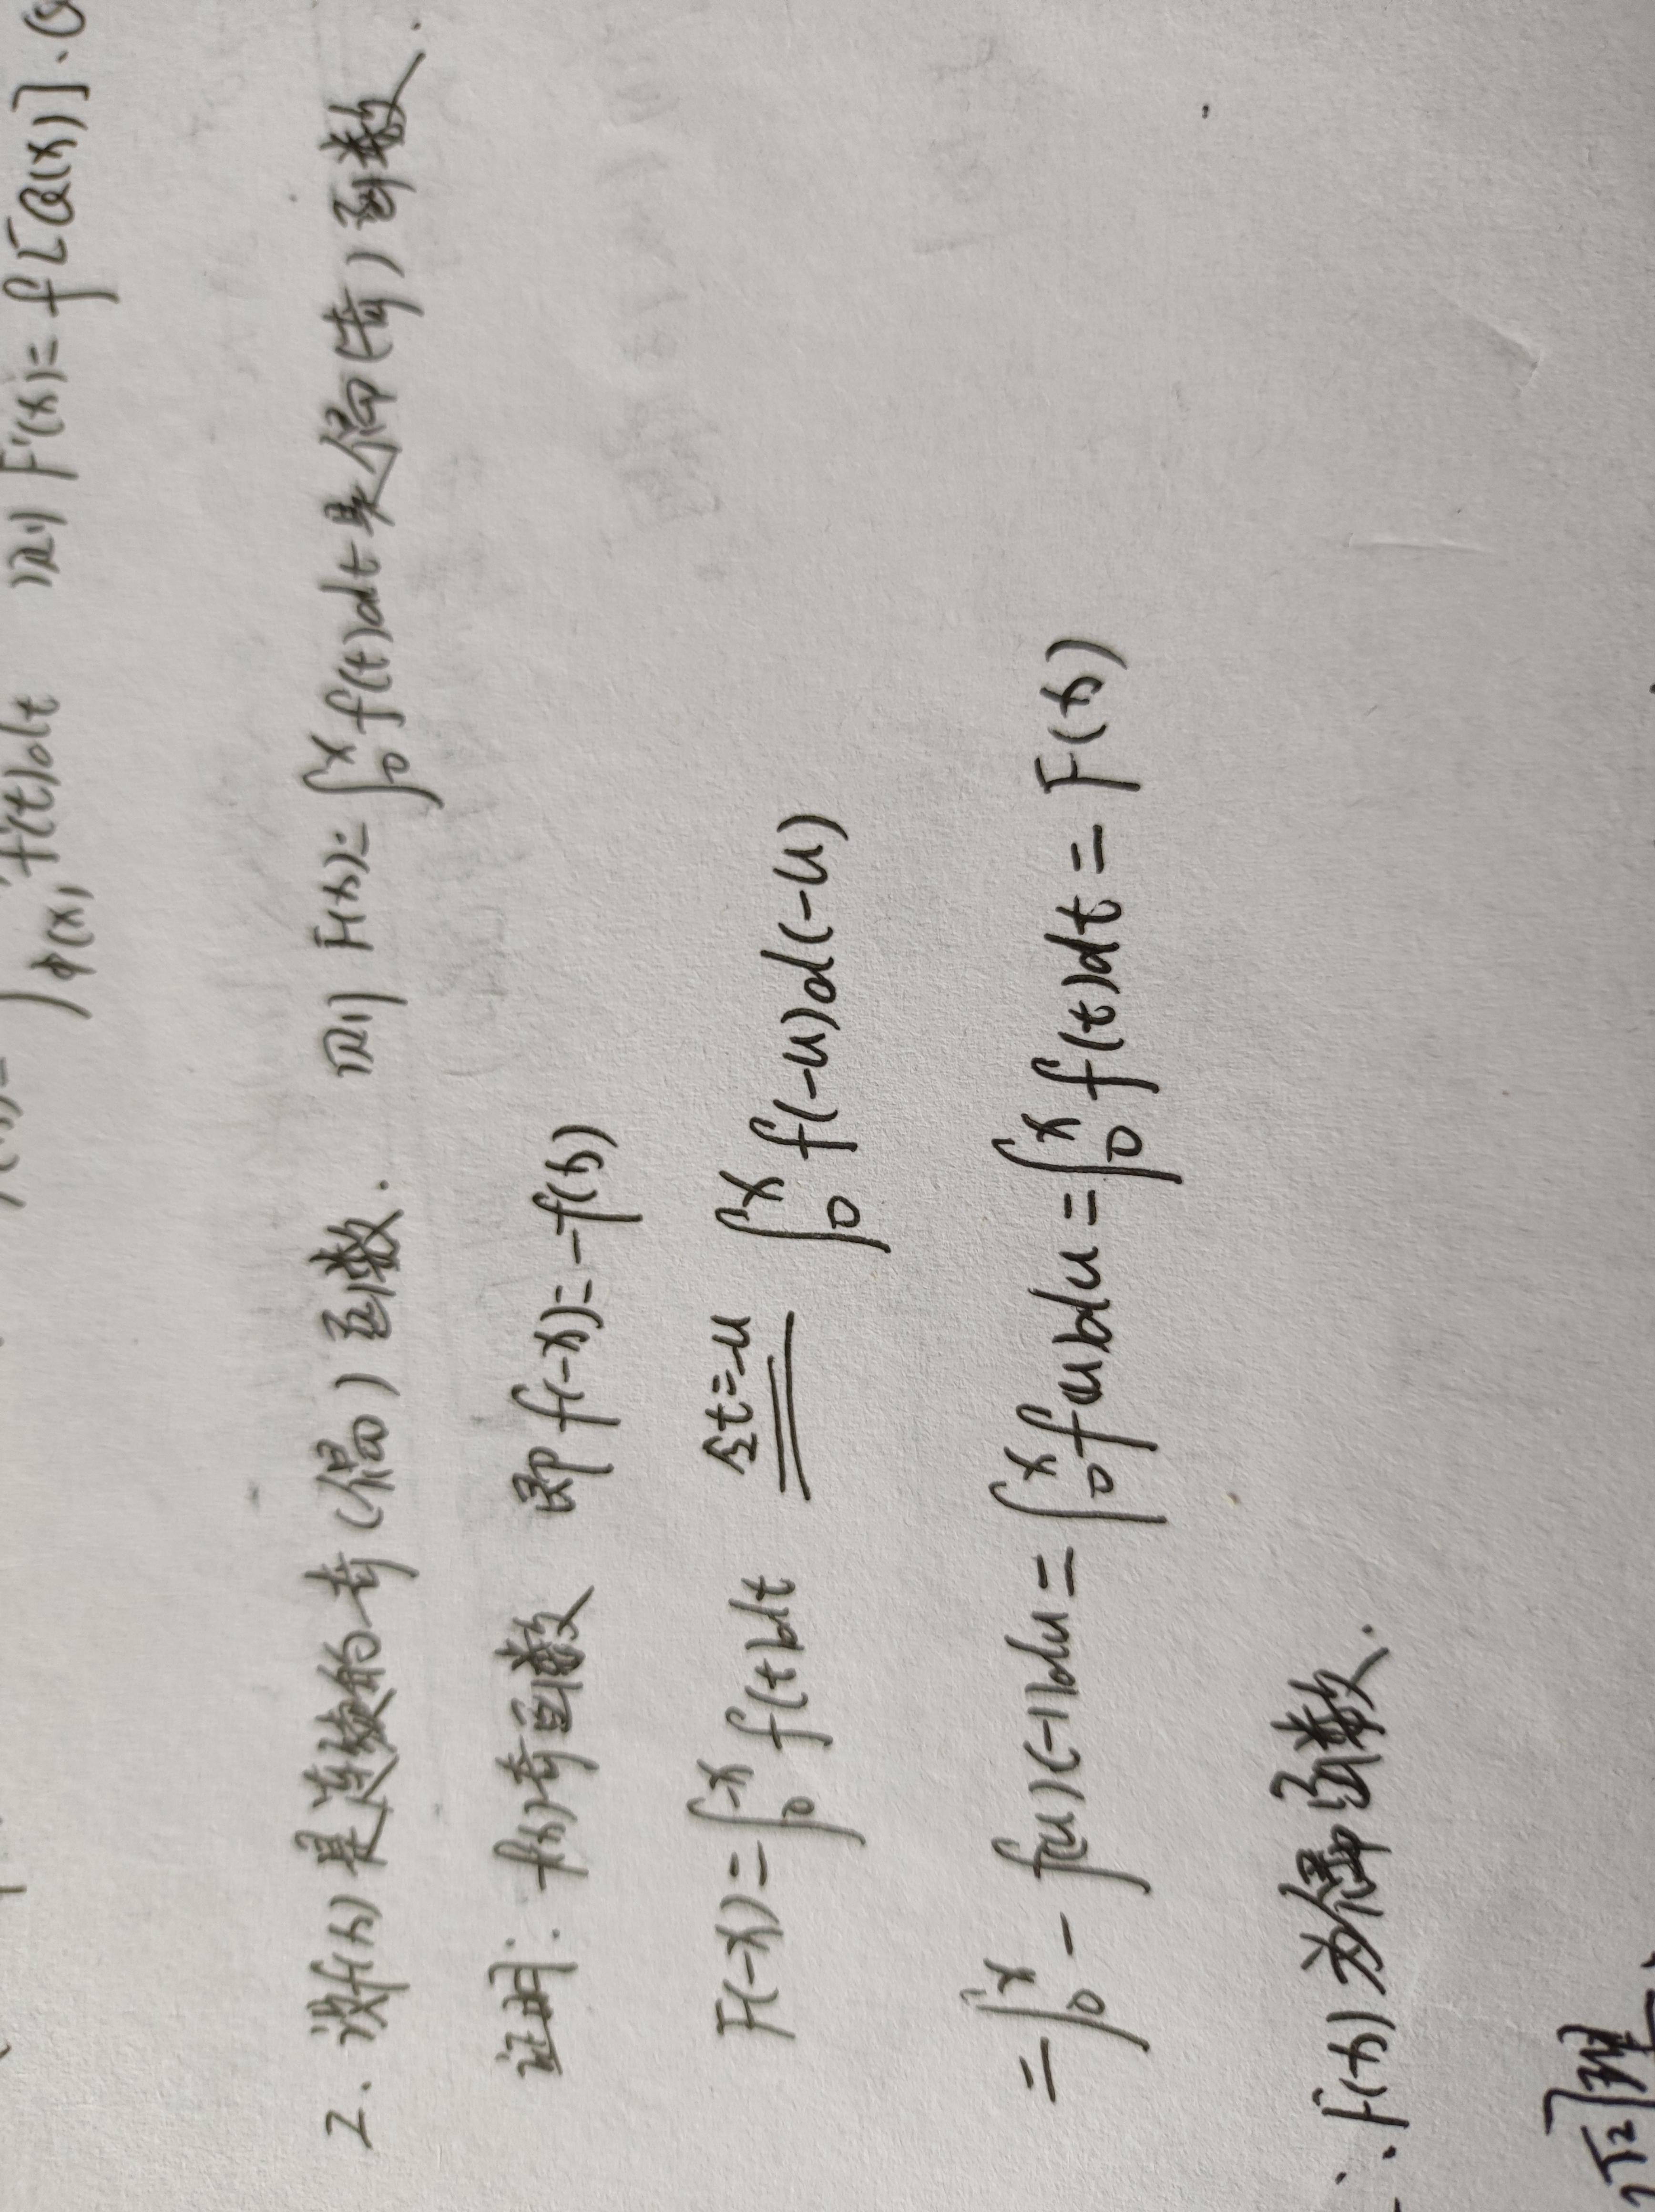 ∫φ(x) f(t)dt 则 F'(x)= f[Q(x)]·Q
2. 设f(x)是连续的奇(偶)函数. 则 F(x)=∫₀ˣ f(t)dt是偶(奇)函数.
证明: f(x)奇函数 即 f(-x)=-f(x)
F(-x)=∫₀⁻ˣ f(t)dt 令t=-u ∫₀ˣ f(-u)d(-u)
=∫₀ˣ - f(u)(-1)du=∫₀ˣ f(u)du=∫₀ˣ f(t)dt=F(x)
∴F(x)为偶函数.